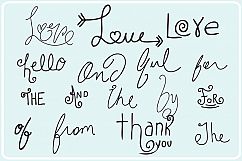 Love Love Love
hello and Girl for
THE AND the by FOR
of from thank you The